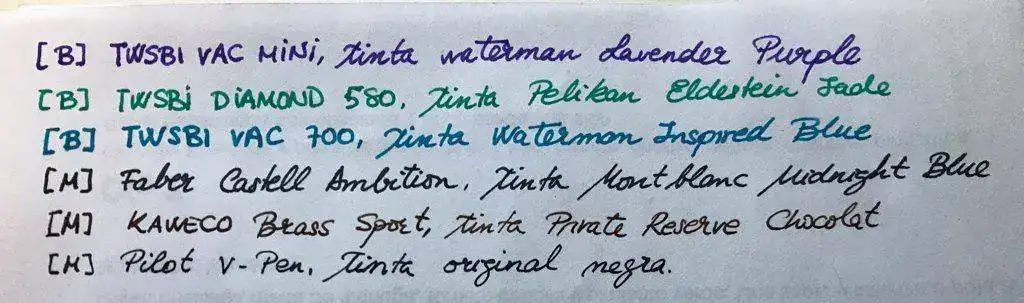 [B] TWSBI VAC MINI, tinta waterman Lavender Purple
[B] TWSBI DIAMOND 580, tinta Pelikan Eldestein Jade
[B] TWSBI VAC 700, tinta Waterman Inspired Blue
[M] Faber Castell Ambition, tinta Montblanc Midnight Blue
[M] KAWECO Brass Sport, tinta Private Reserve Chocolat
[M] Pilot V-Pen, Tinta original negra.